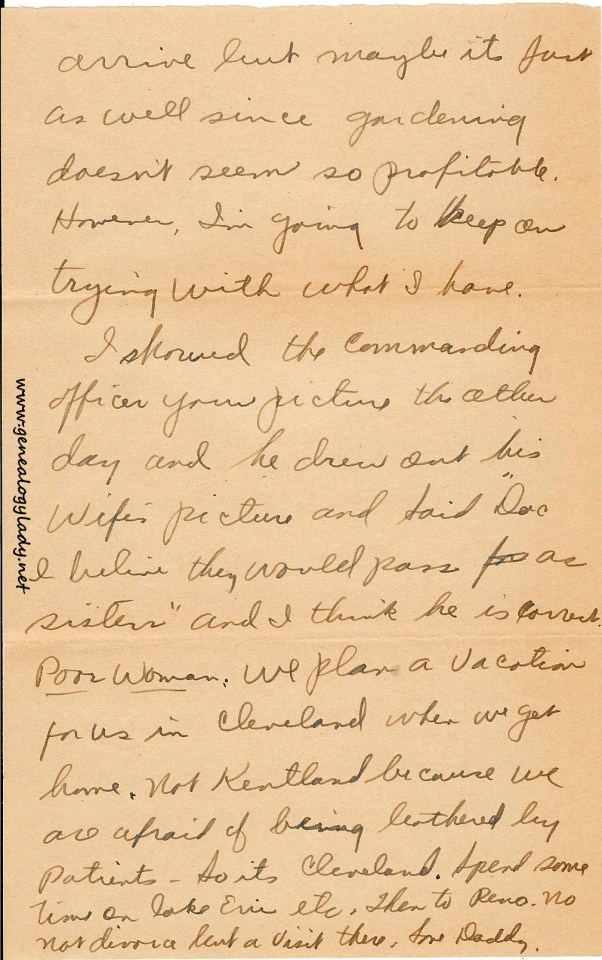 arrive but maybe its just
as well since gardening
doesn't seem so profitable.
However, I'm going to keep on
trying with what I have.
I showed the commanding
officer your picture the other
day and he drew out his
wife's picture and said "Doc
I believe they would pass for as
sisters" and I think he is correct.
Poor Woman. We plan a vacation
for us in Cleveland when we get
home. Not Kentland because we
are afraid of being bothered by
patients - So its Cleveland. Spend some
time on Lake Erie etc. Then to Reno. No
not divorce but a visit there. Love Daddy.
www.genealogylady.net